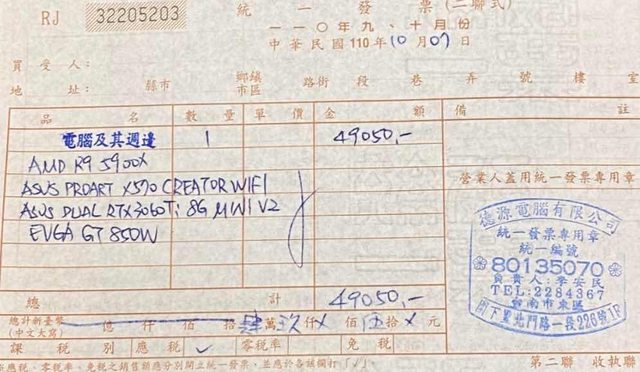 統一發票(二聯式)
RJ 32205203
一一〇年九、十月份
中華民國110年10月07日
買受人:
地址: 縣市 鄉鎮市區 路街 段 巷 弄 號 樓 室
品名 數量 單價 金額 備註
電腦及其週邊 1 49050,-
AMD R9 5900X
ASUS PROART X570 CREATOR WIFI
ASUS DUAL RTX3060Ti 8G MINI V2
EVGA GT 850W
營業人蓋用統一發票專用章
德源電腦有限公司
統一發票專用章
統一編號
80135070
負責人:李安民
TEL:2284367
台南市東區
北門路一段226號1F
總計 49050,-
總計新臺幣
(中文大寫) 億 仟 佰 拾 肆 萬 玖 仟 X 佰 伍 拾 X 元
課稅別 應稅 ✓ 零稅率 免稅
※應稅、零稅率、免稅之銷售額應分別開立統一發票,並應於各該欄打「✓」。
第二聯 收執聯